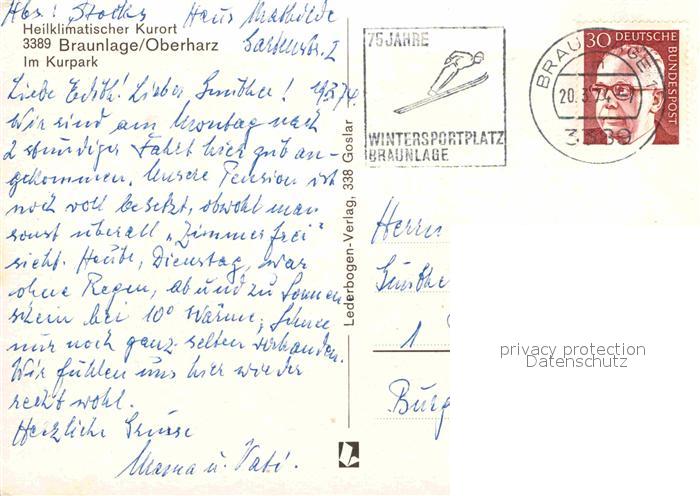 Abs: Stocks Haus Mathilde
Gartenstr. 1
Heilklimatischer Kurort
3389 Braunlage/Oberharz
Im Kurpark
Liebe Edith! Lieber Günther! 19.3.74.
Wir sind am Montag nach
2 stündiger Fahrt hier gut an-
gekommen. Unsere Pension ist
noch voll besetzt, obwohl man
sonst überall „Zimmer frei"
sieht. Heute, Dienstag, war
ohne Regen, ab und zu Sonnen
schein bei 10° Wärme, Schnee
nur noch ganz selten vorhanden.
Wir fühlen uns hier wieder
recht wohl.
Herzliche Grüsse
Mama u. Vati.
Lederbogen-Verlag, 338 Goslar
75 JAHRE
WINTERSPORTPLATZ
BRAUNLAGE
BRAUNLAGE 1
20.3.74
3389
30 DEUTSCHE
BUNDESPOST
Herrn
Günthe
1
Burg
privacy protection
Datenschutz